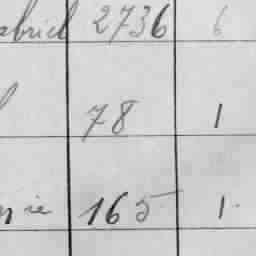 abriel 2736 6
78 1
nie 165 1